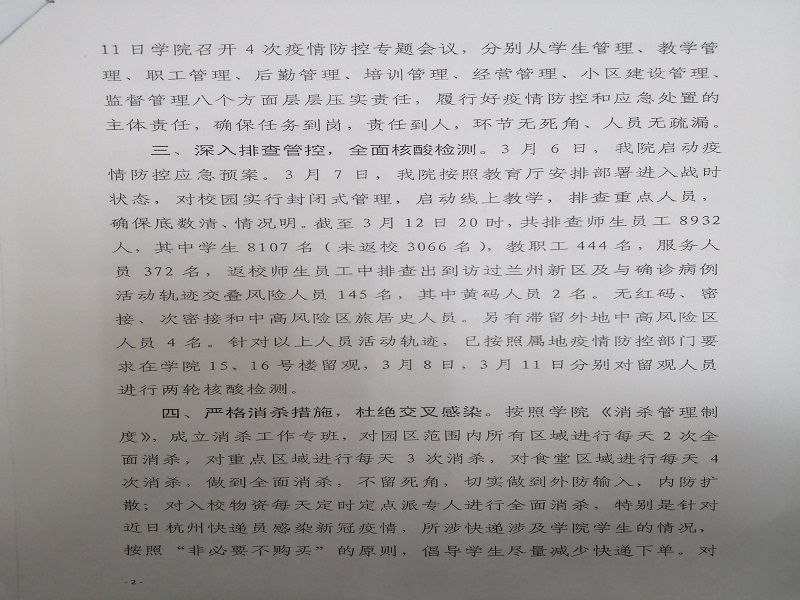 11 日学院召开 4 次疫情防控专题会议，分别从学生管理、教学管
理、职工管理、后勤管理、培训管理、经营管理、小区建设管理、
监督管理八个方面层层压实责任，履行好疫情防控和应急处置的
主体责任，确保任务到岗，责任到人，环节无死角、人员无疏漏。
三、深入排查管控，全面核酸检测。3 月 6 日，我院启动疫
情防控应急预案。3 月 7 日，我院按照教育厅安排部署进入战时
状态，对校园实行封闭式管理，启动线上教学，排查重点人员，
确保底数清、情况明。截至 3 月 12 日 20 时，共排查师生员工 8932
人，其中学生 8107 名（未返校 3066 名），教职工 444 名，服务人
员 372 名，返校师生员工中排查出到访过兰州新区及与确诊病例
活动轨迹交叠风险人员 145 名，其中黄码人员 2 名。无红码、密
接、次密接和中高风险区旅居史人员。另有滞留外地中高风险区
人员 4 名。针对以上人员活动轨迹，已按照属地疫情防控部门要
求在学院 15、16 号楼留观，3 月 8 日，3 月 11 日分别对留观人员
进行两轮核酸检测。
四、严格消杀措施，杜绝交叉感染。按照学院《消杀管理制
度》，成立消杀工作专班，对园区范围内所有区域进行每天 2 次全
面消杀，对重点区域进行每天 3 次消杀，对食堂区域进行每天 4
次消杀，做到全面消杀，不留死角，切实做到外防输入，内防扩
散；对入校物资每天定时定点派专人进行全面消杀，特别是针对
近日杭州快递员感染新冠疫情，所涉快递涉及学院学生的情况，
按照“非必要不购买”的原则，倡导学生尽量减少快递下单。对
- 2 -